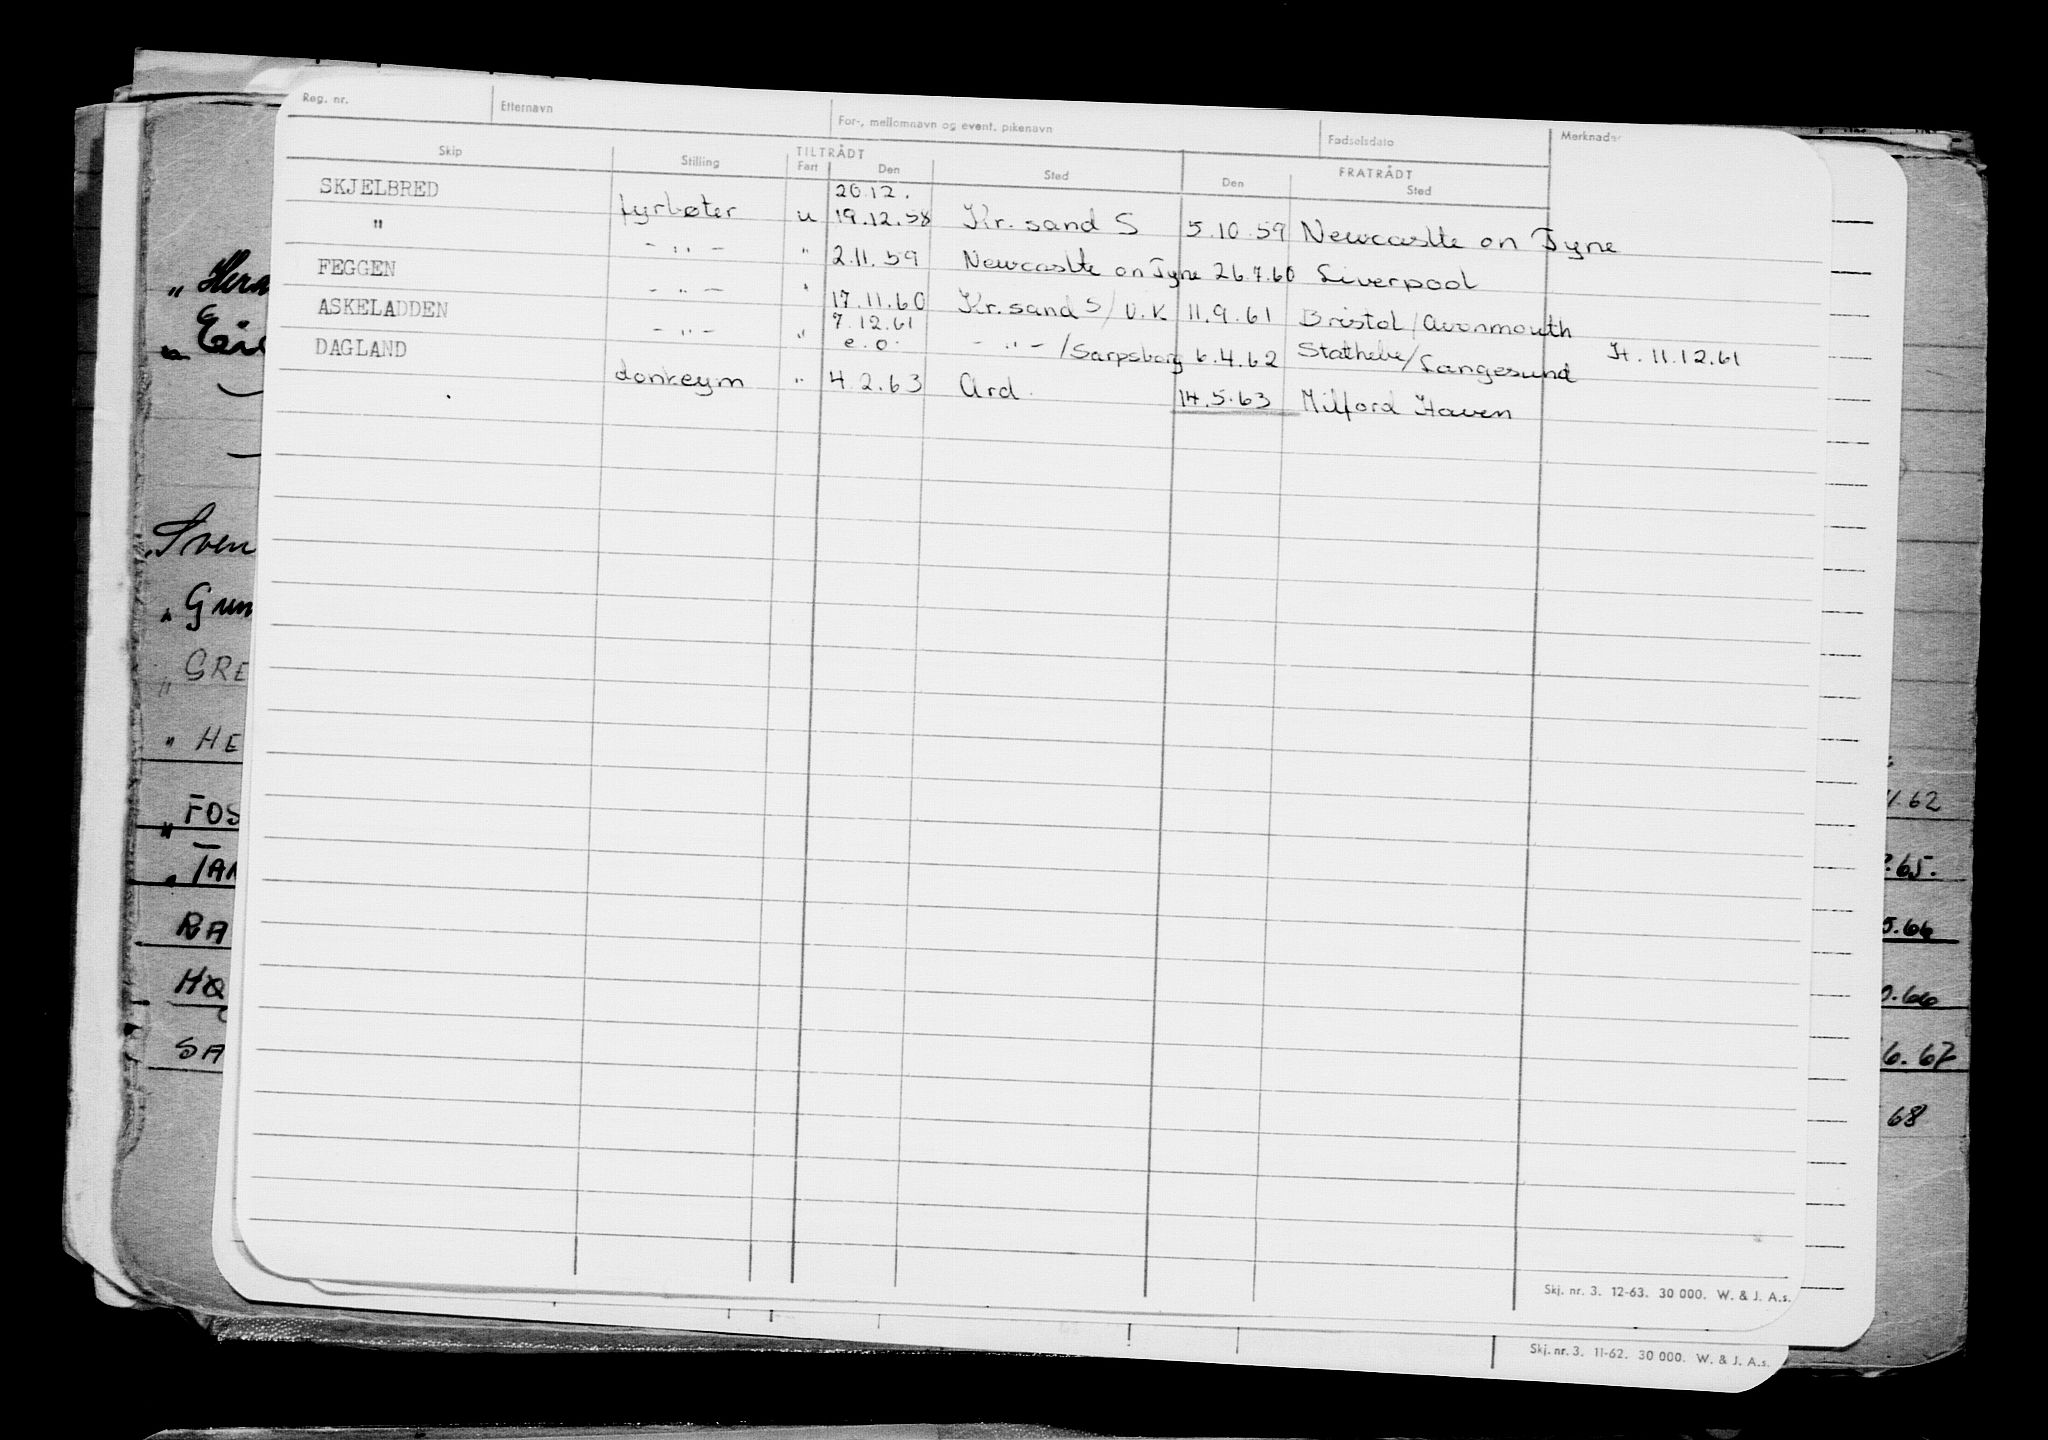 Reg. nr. Etternavn For-, mellomnavn og event. pikenavn Fødselsdato Merknader
Skip Stilling TILTRÅDT Fart Den Sted FRATRÅDT Den Sted
20.12.
SKJELBRED fyrbøter u 19.12.58 Kr. sand S 5.10.59 Newcastle on Tyne
" - " - " 2.11.59 Newcastle on Tyne 26.7.60 Liverpool
FEGGEN - " - " 17.11.60 Kr. sand S/U.K 11.9.61 Bristol/Avonmouth
7.12.61
ASKELADDEN - " - " e.o. - " - /Sarpsborg 6.4.62 Stathelle/Langesund H. 11.12.61
DAGLAND donkeym " 4.2.63 Ard. 14.5.63 Milford Haven
"
"
Sven
" Gun
" GRE
" HE
" FOS
" TAN
RA
HØ
SA
.62
.65.
5.66
0.66
6.67
68
Skj. nr. 3. 12-63. 30 000. W. & J. A.s.
Skj. nr. 3. 11-62. 30 000. W. & J. A.s.